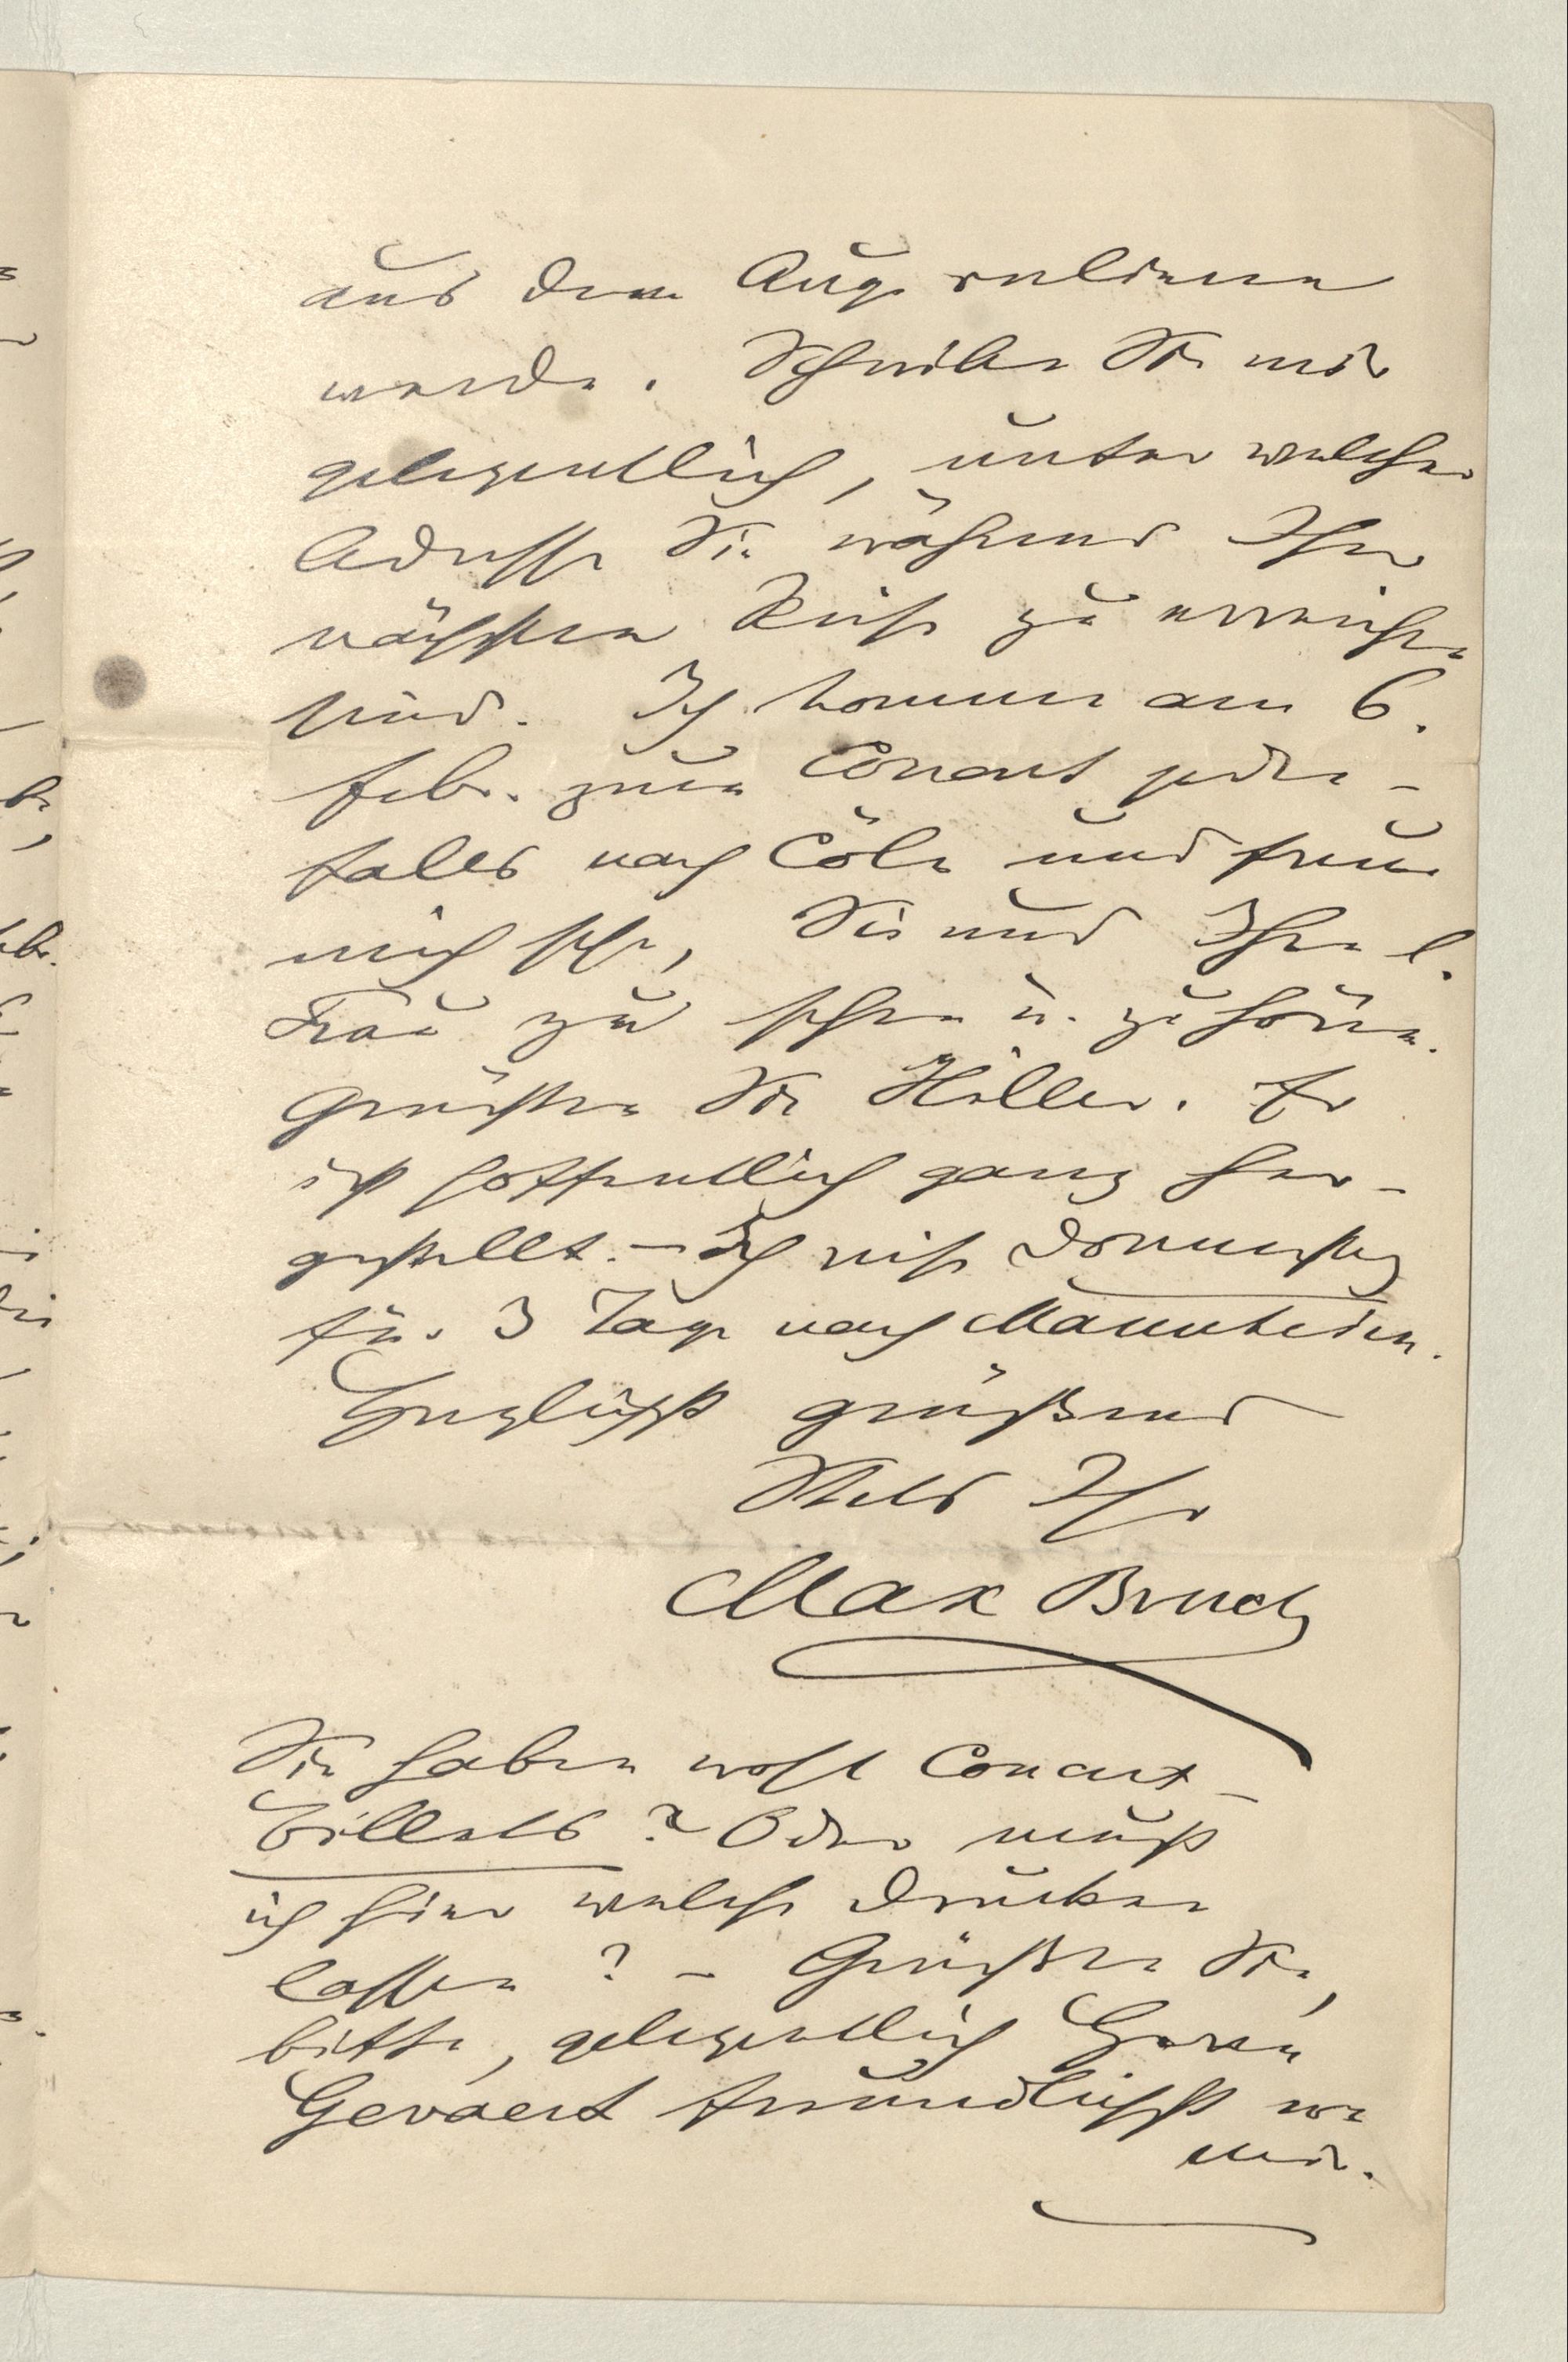 aus dem Auge verlieren
werde. Schreiben Sie mir
gelegentlich, unter welcher
Adresse Sie während Ihrer
nächsten Reise zu erreichen
sind. Ich komme am 6.
Febr. zum Concert jeden-
falls nach Cöln und freue
mich sehr, Sie und Ihre l.
Frau zu sehen u. zu hören.
Grüßen Sie Hiller. Er
ist hoffentlich ganz her-
gestellt. – Ich reise Donnerstag
für 3 Tage nach Mannheim.
Herzlichst grüßend
Stets Ihr
Max Bruch
Sie haben wohl Concert-
billets? Oder muß
ich hier welche drucken
lassen? – Grüßen Sie,
bitte, gelegentlich Herrn
Gevaert freundlichst von
mir.